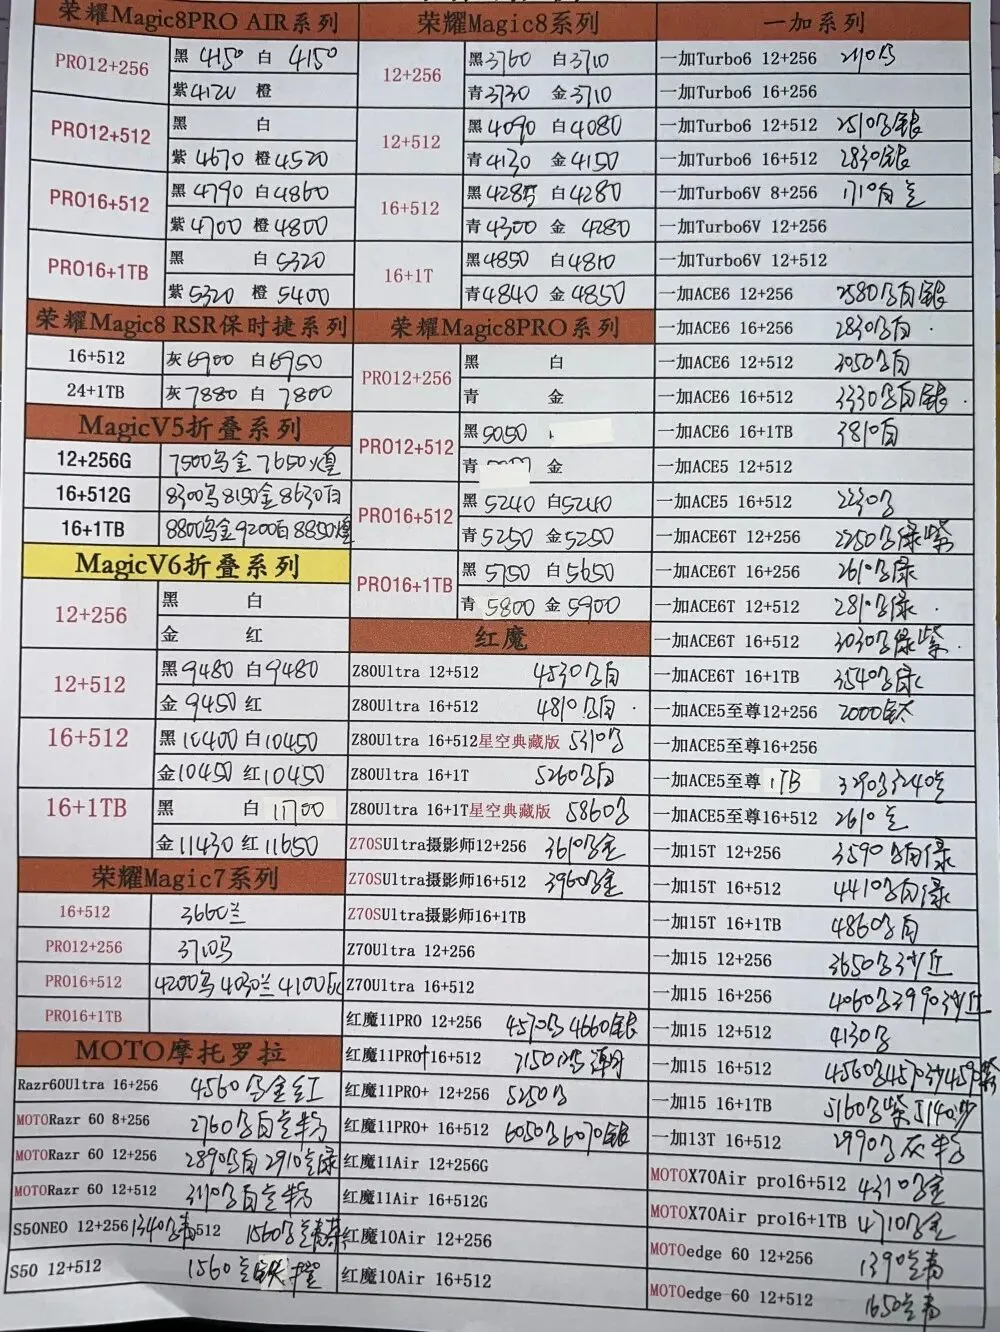 荣耀Magic8PRO AIR系列
PRO12+256 黑 4150 白 4150
紫 4120 橙
PRO12+512 黑 白
紫 4670 橙 4520
PRO16+512 黑 4790 白 4860
紫 4700 橙 4800
PRO16+1TB 黑 白 5320
紫 5320 橙 5400
荣耀Magic8 RSR保时捷系列
16+512 灰 6900 白 6950
24+1TB 灰 7880 白 7800
MagicV5折叠系列
12+256G 7500乌金 7650煌
16+512G 8300乌 8150金 8630白
16+1TB 8800乌金 9200白 8850煌
MagicV6折叠系列
12+256 黑 白
金 红
12+512 黑 9480 白 9480
金 9450 红
16+512 黑 10400 白 10450
金 10450 红 10450
16+1TB 黑 白 11700
金 11430 红 11650
荣耀Magic7系列
16+512 3660兰
PRO12+256 3710乌
PRO16+512 4200乌 4030兰 4100灰
PRO16+1TB
MOTO摩托罗拉
Razr60Ultra 16+256 4560乌金红
MOTORazr 60 8+256 2760乌白兰粉
MOTORazr 60 12+256 2890乌白 2910兰绿
MOTORazr 60 12+512 3110乌白兰粉
S50NEO 12+256 1340乌青 512 1560乌兰青
S50 12+512 1560兰
荣耀Magic8系列
12+256 黑 3760 白 3710
青 3730 金 3710
12+512 黑 4090 白 4080
青 4130 金 4150
16+512 黑 4285 白 4280
青 4300 金 4280
16+1T 黑 4850 白 4810
青 4840 金 4850
荣耀Magic8PRO系列
PRO12+256 黑 白
青 金
PRO12+512 黑 5050
青 金
PRO16+512 黑 5240 白 5240
青 5250 金 5250
PRO16+1TB 黑 5750 白 5650
青 5800 金 5900
红魔
Z80Ultra 12+512 4530乌白
Z80Ultra 16+512 4810乌白
Z80Ultra 16+512星空典藏版 5310乌
Z80Ultra 16+1T 5260乌白
Z80Ultra 16+1T星空典藏版 5860乌
Z70SUltra摄影师12+256 3610乌金
Z70SUltra摄影师16+512 3960乌金
Z70SUltra摄影师16+1TB
Z70Ultra 12+256
Z70Ultra 16+512
红魔11PRO 12+256 4570乌 4660银
红魔11PRO+16+512 7150
红魔11PRO+ 12+256 5250乌
红魔11PRO+ 16+512 6050乌 6070银
红魔11Air 12+256G
红魔11Air 16+512G
红魔10Air 12+256
红魔10Air 16+512
一加系列
一加Turbo6 12+256 2110乌
一加Turbo6 16+256
一加Turbo6 12+512 2510乌银
一加Turbo6 16+512 2830银
一加Turbo6V 8+256 1710白兰
一加Turbo6V 12+256
一加Turbo6V 12+512
一加ACE6 12+256 2580乌白银
一加ACE6 16+256 2830乌白
一加ACE6 12+512 3050乌白
一加ACE6 16+512 3330乌白银
一加ACE6 16+1TB 3810白
一加ACE5 12+512
一加ACE5 16+512 2230乌
一加ACE6T 12+256 2250乌绿紫
一加ACE6T 16+256 2610乌绿
一加ACE6T 12+512 2810乌绿
一加ACE6T 16+512 3030乌绿紫
一加ACE6T 16+1TB 3540乌绿
一加ACE5至尊12+256 2000钛
一加ACE5至尊16+256
一加ACE5至尊 1TB 3290乌 3240兰
一加ACE5至尊16+512 2610兰
一加15T 12+256 3590乌白绿
一加15T 16+512 4410乌白绿
一加15T 16+1TB 4860乌白
一加15 12+256 3650乌沙丘
一加15 16+256 4060乌 3990沙丘
一加15 12+512 4130乌
一加15 16+512 4560乌 4570沙 4590紫
一加15 16+1TB 5160乌紫 5140沙
一加13T 16+512 2990乌灰粉
MOTOX70Air pro16+512 4310乌金
MOTOX70Air pro16+1TB 4710乌金
MOTOedge 60 12+256 1390兰青
MOTOedge 60 12+512 1650兰青